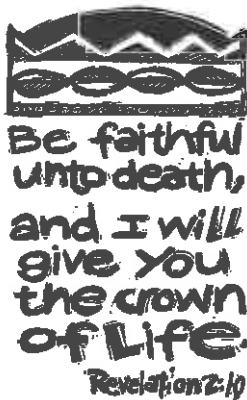 Be faithful
unto death,
and I will
give you
the crown
of Life.
Revelation 2:10